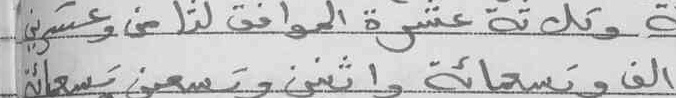 ة وثلاثة عشرة الموافق لثامن وعشرين
الف وتسعمائة واثنين وتسعين تسعمائة